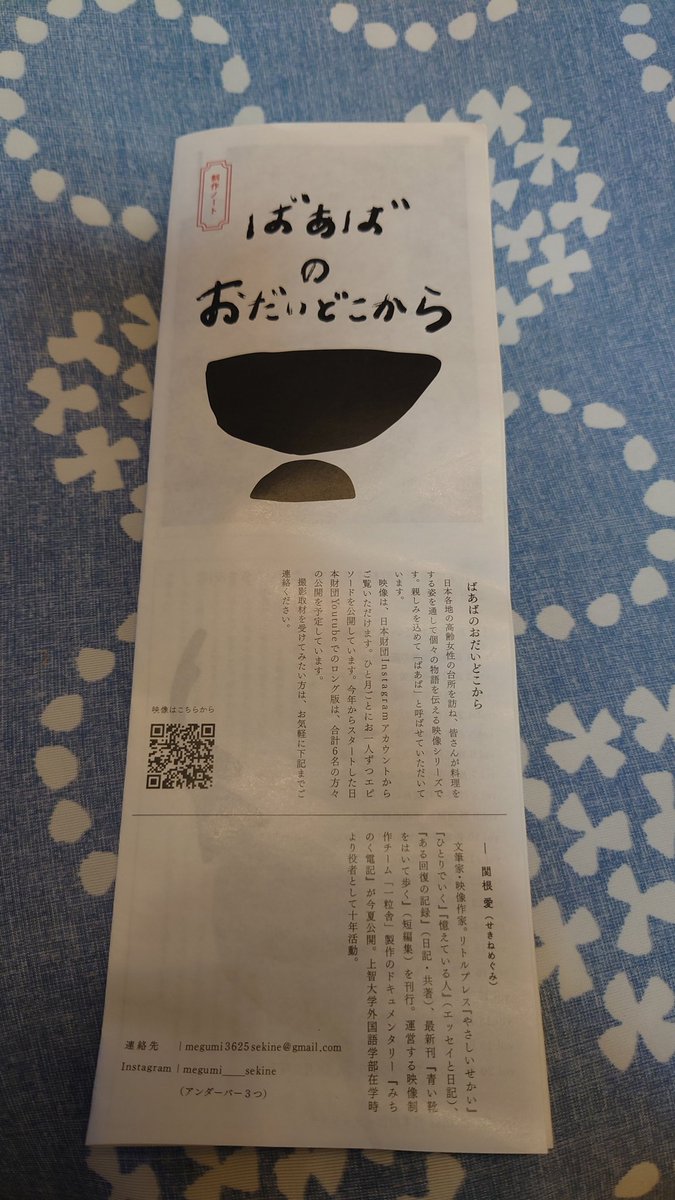 制作ノート
ばあば
の
おだいどこから
ばあばのおだいどこから
日本各地の高齢女性の台所を訪ね、皆さんが料理を
する姿を通して個々の物語を伝える映像シリーズで
す。親しみを込めて「ばあば」と呼ばせていただいて
います。
映像は、日本財団Instagramアカウントから
ご覧いただけます。ひと月ごとにお一人ずつエピ
ソードを公開しています。今年からスタートした日
本財団Youtubeでのロング版は、合計6名の方々
の公開を予定しています。
撮影取材を受けてみたい方は、お気軽に下記までご
連絡ください。
映像はこちらから
― 関根 愛(せきねめぐみ)
文筆家・映像作家。リトルプレス『やさしいせかい』
『ひとりでいく』『憶えている人』(エッセイと日記)、
『ある回復の記録』(日記・共著)、最新刊『青い靴
をはいて歩く』(短編集)を刊行。運営する映像制
作チーム「一粒舎」製作のドキュメンタリー『みち
のく電記』が今夏公開。上智大学外国語学部在学時
より役者として十年活動。
連絡先 | megumi3625sekine@gmail.com
Instagram | megumi___sekine
(アンダーバー3つ)